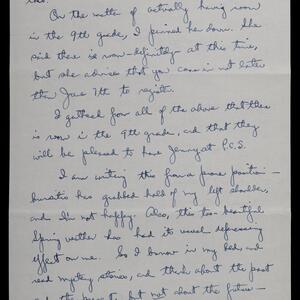 On the matter of actually having room
in the 9th grade, I pinned her down. She
said there is room – definitely – at this time,
but she advises that you come in not later
than June 7th to register.
I gathered from all of the above that there
is room in the 9th grade, and that they
will be pleased to have Jenny at P.C.S.
I am writing this from a prone position –
bursitis has grabbed hold of my left shoulder,
and I'm not happy. Also, this too-beautiful
Spring weather has had its usual depressing
effect on me. So I burrow in my bed, and
read mystery stories, and think about the past
but not about the future –